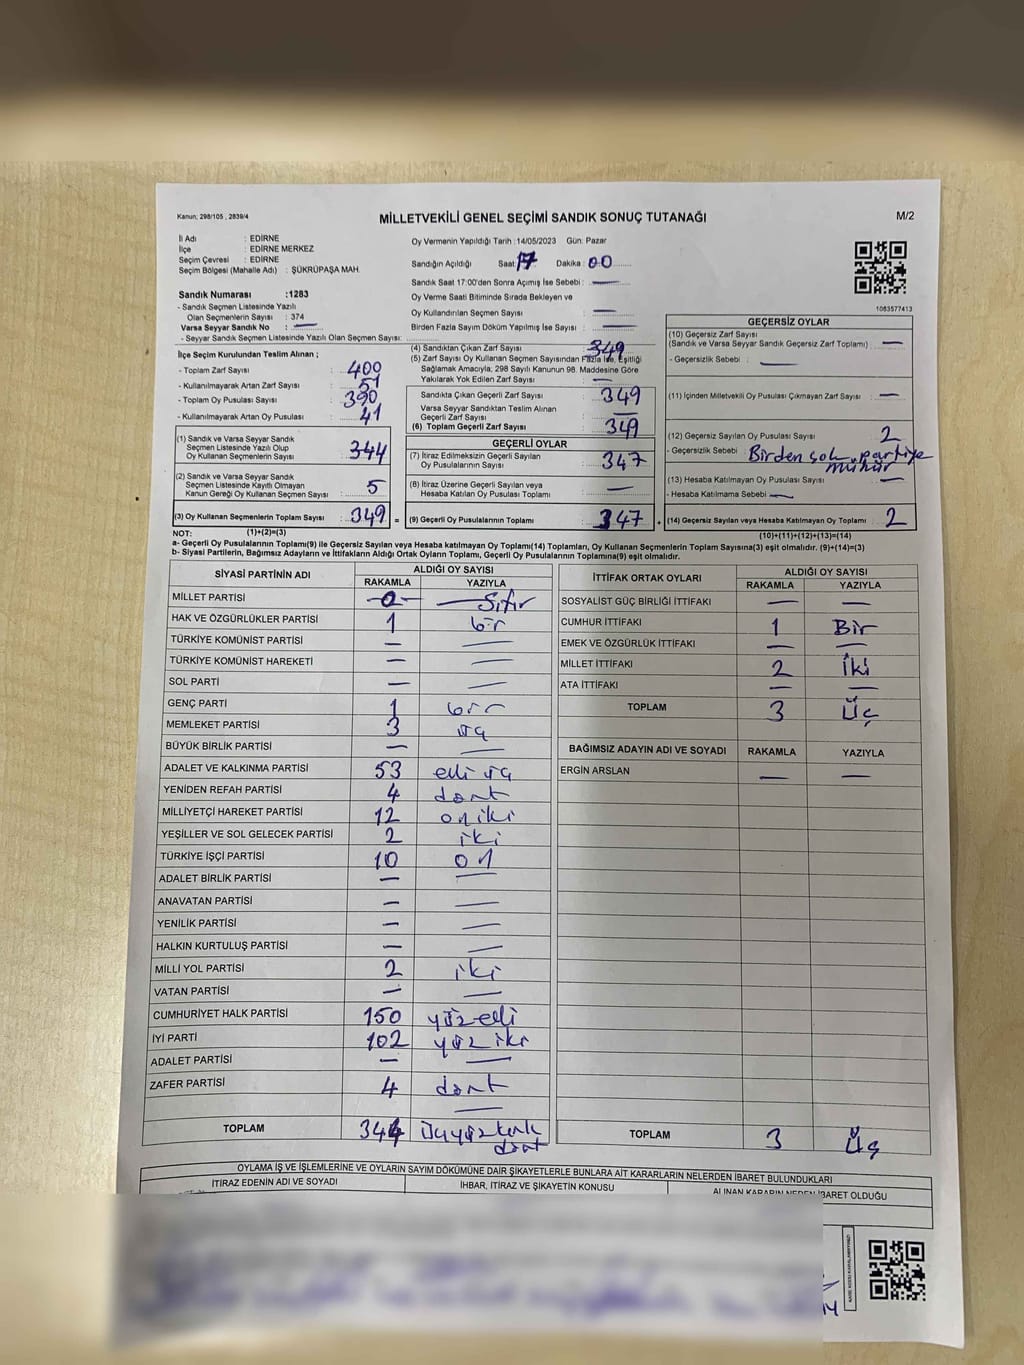 Kanun; 298/105 , 2839/4
MİLLETVEKİLİ GENEL SEÇİMİ SANDIK SONUÇ TUTANAĞI
M/2
İl Adı : EDİRNE
İlçe : EDİRNE MERKEZ
Seçim Çevresi : EDİRNE
Seçim Bölgesi (Mahalle Adı) : ŞÜKRÜPAŞA MAH.
Sandık Numarası :1283
- Sandık Seçmen Listesinde Yazılı
Olan Seçmenlerin Sayısı : 374
Varsa Seyyar Sandık No : —
- Seyyar Sandık Seçmen Listesinde Yazılı Olan Seçmen Sayısı:
Oy Vermenin Yapıldığı Tarih :14/05/2023 Gün: Pazar
Sandığın Açıldığı Saat: 17 Dakika : 00
Sandık Saat 17:00'den Sonra Açılmış İse Sebebi : —
Oy Verme Saati Bitiminde Sırada Bekleyen ve
Oy Kullandırılan Seçmen Sayısı : —
Birden Fazla Sayım Döküm Yapılmış İse Sayısı : —
1083577413
İlçe Seçim Kurulundan Teslim Alınan ;
- Toplam Zarf Sayısı : 400
- Kullanılmayarak Artan Zarf Sayısı : 51
- Toplam Oy Pusulası Sayısı : 390
- Kullanılmayarak Artan Oy Pusulası : 41
(1) Sandık ve Varsa Seyyar Sandık
Seçmen Listesinde Yazılı Olup
Oy Kullanan Seçmenlerin Sayısı : 344
(2) Sandık ve Varsa Seyyar Sandık
Seçmen Listesinde Kayıtlı Olmayan
Kanun Gereği Oy Kullanan Seçmen Sayısı : 5
(3) Oy Kullanan Seçmenlerin Toplam Sayısı : 349
(4) Sandıktan Çıkan Zarf Sayısı : 349
(5) Zarf Sayısı Oy Kullanan Seçmen Sayısından Fazla İse, Eşitliği
Sağlamak Amacıyla; 298 Sayılı Kanunun 98. Maddesine Göre
Yakılarak Yok Edilen Zarf Sayısı : —
Sandıkta Çıkan Geçerli Zarf Sayısı : 349
Varsa Seyyar Sandıktan Teslim Alınan
Geçerli Zarf Sayısı : —
(6) Toplam Geçerli Zarf Sayısı : 349
GEÇERLİ OYLAR
(7) İtiraz Edilmeksizin Geçerli Sayılan
Oy Pusulalarının Sayısı : 347
(8) İtiraz Üzerine Geçerli Sayılan veya
Hesaba Katılan Oy Pusulası Toplamı : —
= (9) Geçerli Oy Pusulalarının Toplamı : 347
GEÇERSİZ OYLAR
(10) Geçersiz Zarf Sayısı
(Sandık ve Varsa Seyyar Sandık Geçersiz Zarf Toplamı) : —
- Geçersizlik Sebebi : —
(11) İçinden Milletvekili Oy Pusulası Çıkmayan Zarf Sayısı : —
(12) Geçersiz Sayılan Oy Pusulası Sayısı : 2
- Geçersizlik Sebebi : Birden çok partiye
mühür
(13) Hesaba Katılmayan Oy Pusulası Sayısı : —
- Hesaba Katılmama Sebebi : —
+ (14) Geçersiz Sayılan veya Hesaba Katılmayan Oy Toplamı : 2
NOT: (1)+(2)=(3)
(10)+(11)+(12)+(13)=(14)
a- Geçerli Oy Pusulalarının Toplamı(9) ile Geçersiz Sayılan veya Hesaba Katılmayan Oy Toplamı(14) Toplamları, Oy Kullanan Seçmenlerin Toplam Sayısına(3) eşit olmalıdır. (9)+(14)=(3)
b- Siyasi Partilerin, Bağımsız Adayların ve İttifakların Aldığı Ortak Oyların Toplamı, Geçerli Oy Pusulalarının Toplamına(9) eşit olmalıdır.
SİYASİ PARTİNİN ADI ALDIĞI OY SAYISI
RAKAMLA YAZIYLA
MİLLET PARTİSİ 0 Sıfır
HAK VE ÖZGÜRLÜKLER PARTİSİ 1 bir
TÜRKİYE KOMÜNİST PARTİSİ — —
TÜRKİYE KOMÜNİST HAREKETİ — —
SOL PARTİ — —
GENÇ PARTİ 1 bir
MEMLEKET PARTİSİ 3 üç
BÜYÜK BİRLİK PARTİSİ — —
ADALET VE KALKINMA PARTİSİ 53 elli üç
YENİDEN REFAH PARTİSİ 4 dört
MİLLİYETÇİ HAREKET PARTİSİ 12 oniki
YEŞİLLER VE SOL GELECEK PARTİSİ 2 iki
TÜRKİYE İŞÇİ PARTİSİ 10 on
ADALET BİRLİK PARTİSİ — —
ANAVATAN PARTİSİ — —
YENİLİK PARTİSİ — —
HALKIN KURTULUŞ PARTİSİ — —
MİLLİ YOL PARTİSİ 2 iki
VATAN PARTİSİ — —
CUMHURİYET HALK PARTİSİ 150 yüzelli
İYİ PARTİ 102 yüz iki
ADALET PARTİSİ — —
ZAFER PARTİSİ 4 dört
—
TOPLAM 344 üçyüz kırk
dört
İTTİFAK ORTAK OYLARI ALDIĞI OY SAYISI
RAKAMLA YAZIYLA
SOSYALİST GÜÇ BİRLİĞİ İTTİFAKI — —
CUMHUR İTTİFAKI 1 Bir
EMEK VE ÖZGÜRLÜK İTTİFAKI — —
MİLLET İTTİFAKI 2 İki
ATA İTTİFAKI — —
TOPLAM 3 Üç
BAĞIMSIZ ADAYIN ADI VE SOYADI RAKAMLA YAZIYLA
ERGİN ARSLAN — —
TOPLAM 3 Üç
OYLAMA İŞ VE İŞLEMLERİNE VE OYLARIN SAYIM DÖKÜMÜNE DAİR ŞİKAYETLERLE BUNLARA AİT KARARLARIN NELERDEN İBARET BULUNDUKLARI
İTİRAZ EDENİN ADI VE SOYADI
İHBAR, İTİRAZ VE ŞİKAYETİN KONUSU
ALINAN KARARIN NEDEN İBARET OLDUĞU